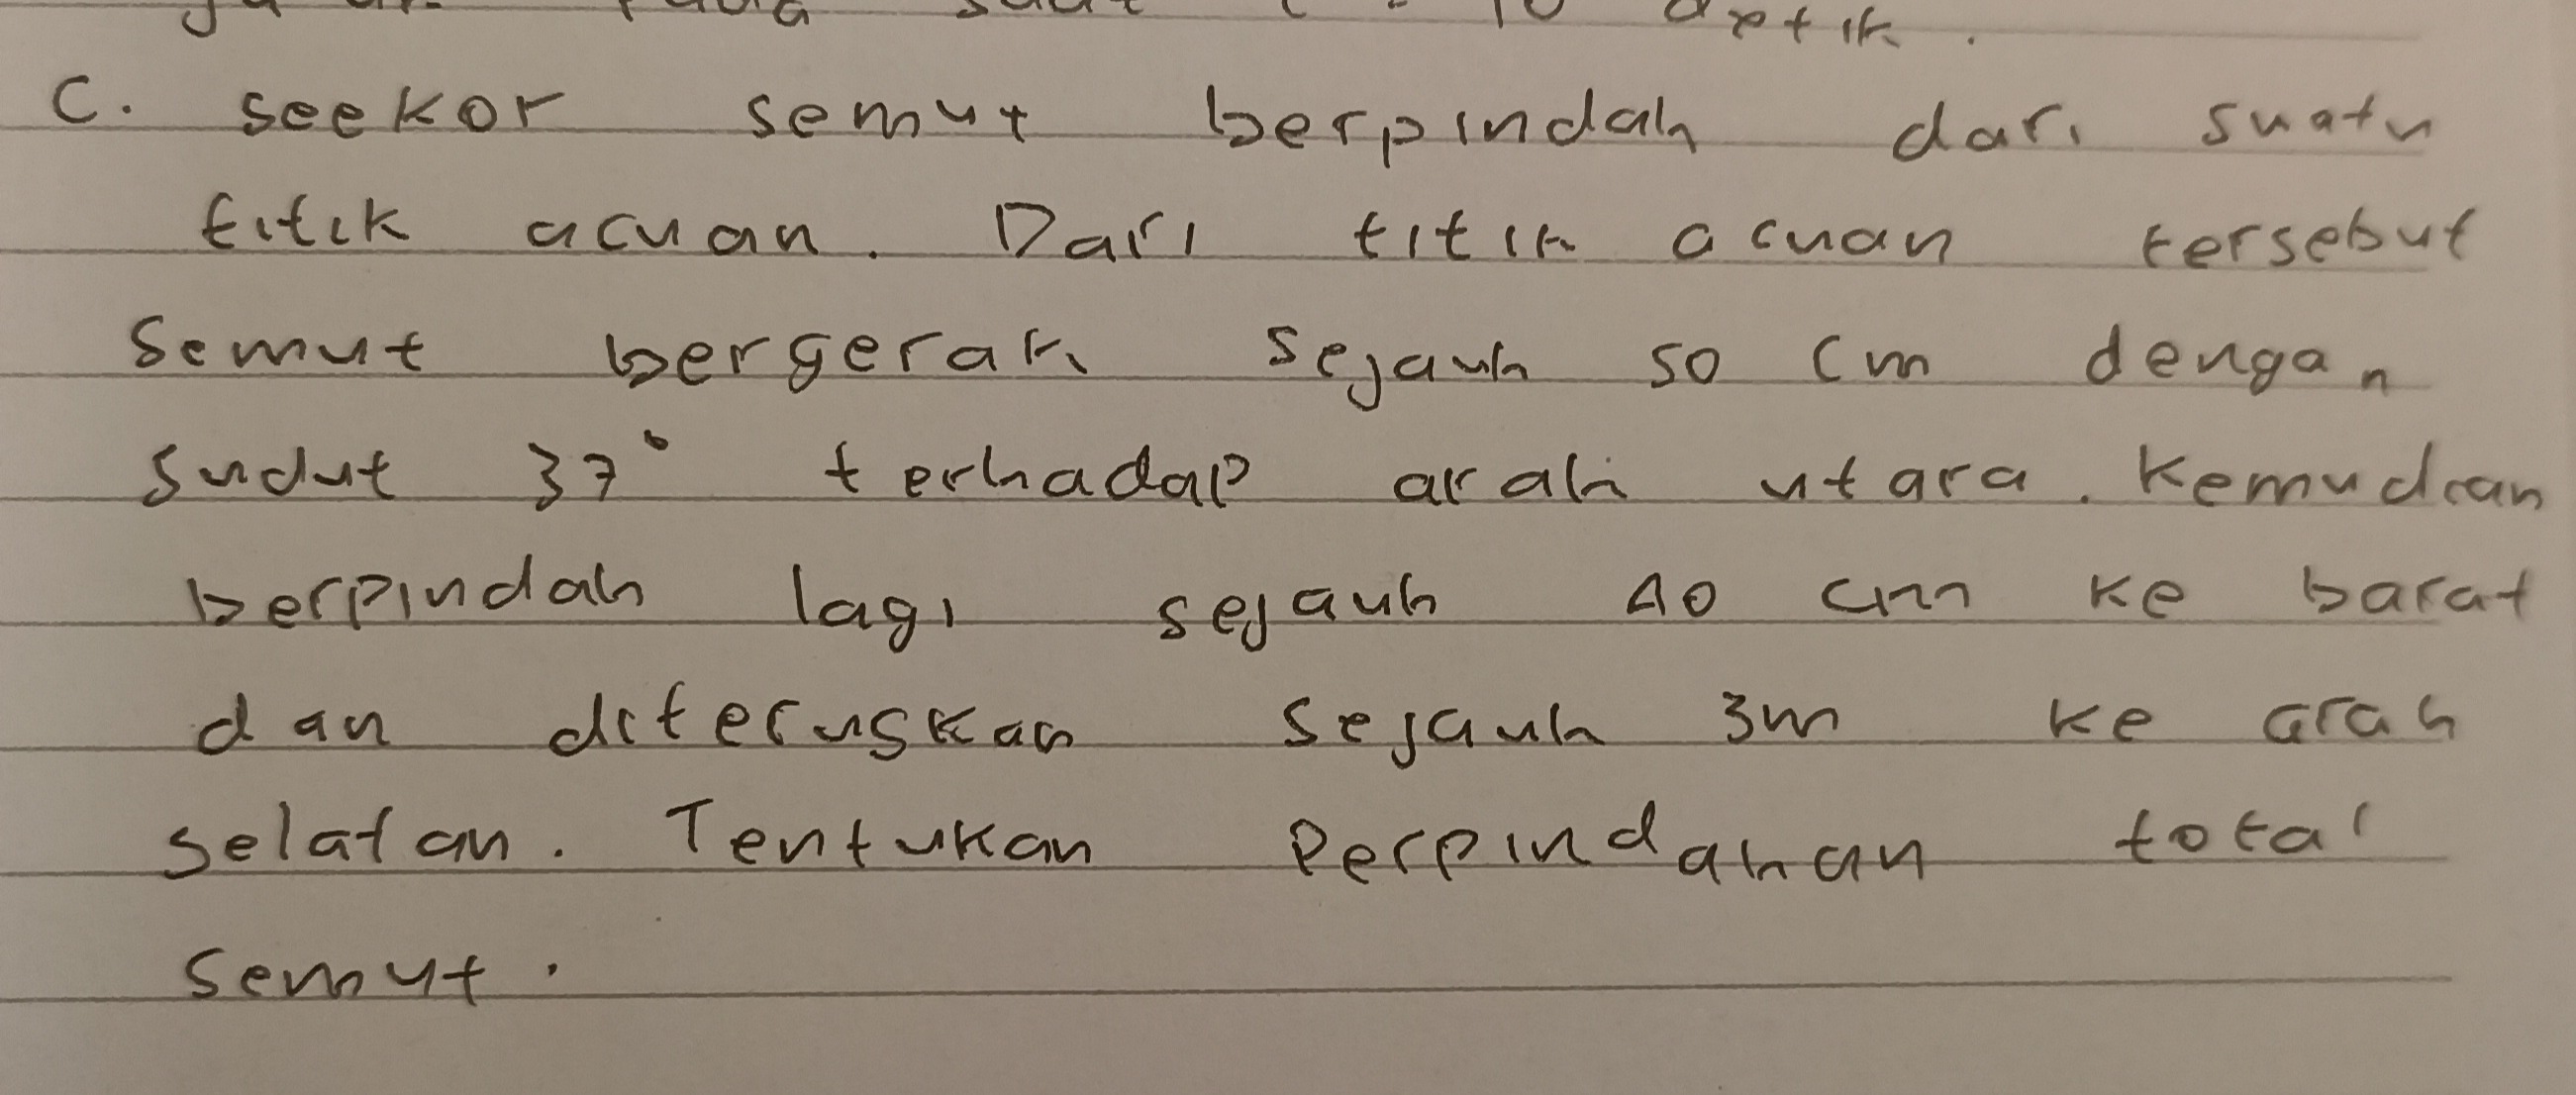 detik.
C. seekor semut berpindah dari suatu
titik acuan. Dari titik acuan tersebut
semut bergerak sejauh 50 cm dengan
sudut 37° terhadap arah utara. Kemudian
berpindah lagi sejauh 40 cm ke barat
dan diteruskan sejauh 3m ke arah
selatan. Tentukan Perpindahan total
semut.